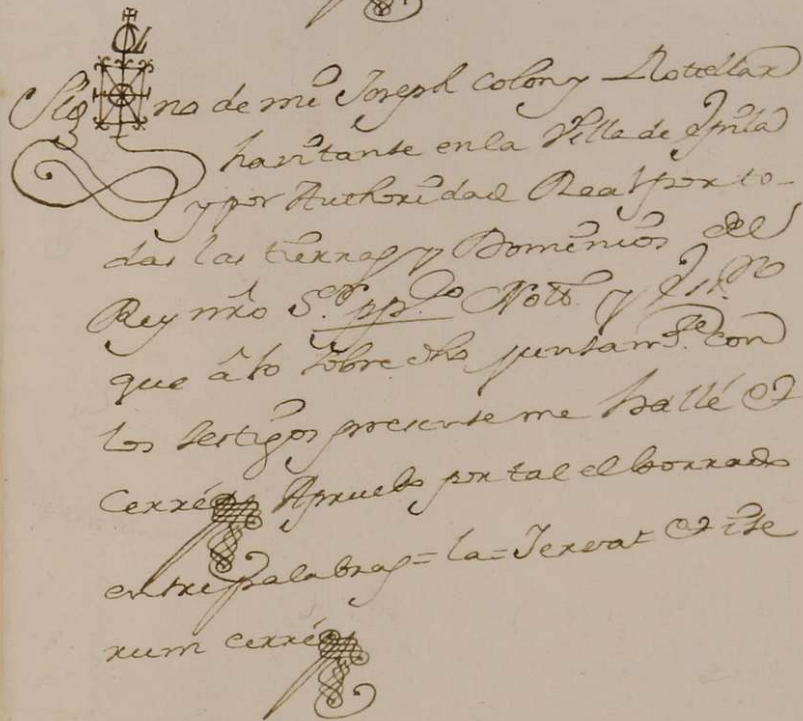 OL
Sig no de mi Joseph Colon y Rotellar
havitante en la Villa de
y por Authoridad Real por to-
das las tierras y Dominios del
Rey nro Sor ppco Notto y
que â lo sobre dho juntamte con
los testigos presente me hallé et
Cerré Apruebo por tal el borrado
entre palabras = la = Jerva = et ite
rum cerré